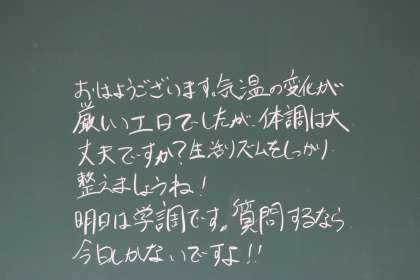 おはようございます。気温の変化が
厳しい工日でしたが、体調は大
丈夫ですか？生活リズムをしっかり
整えましょうね！
明日は学調です。質問するなら
今日しかないですよ！！